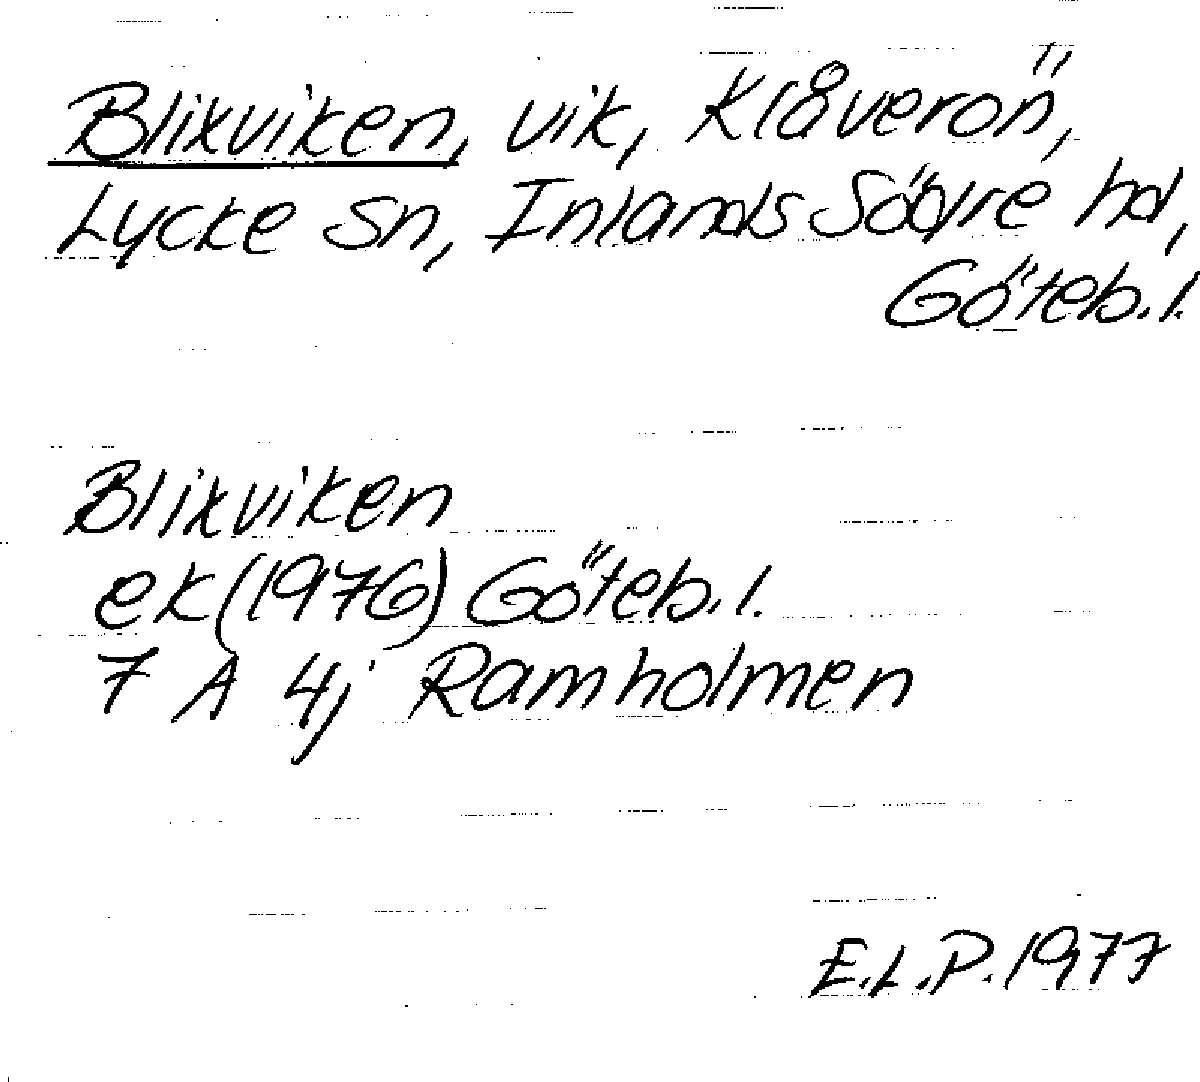 Blikviken, vik, Klåverön,
Lycke sn, Inlands Södre hd,
Göteb.l.
Blikviken
ek (1976) Göteb.l.
7 A 4j Ramholmen
E.L.P. 1977